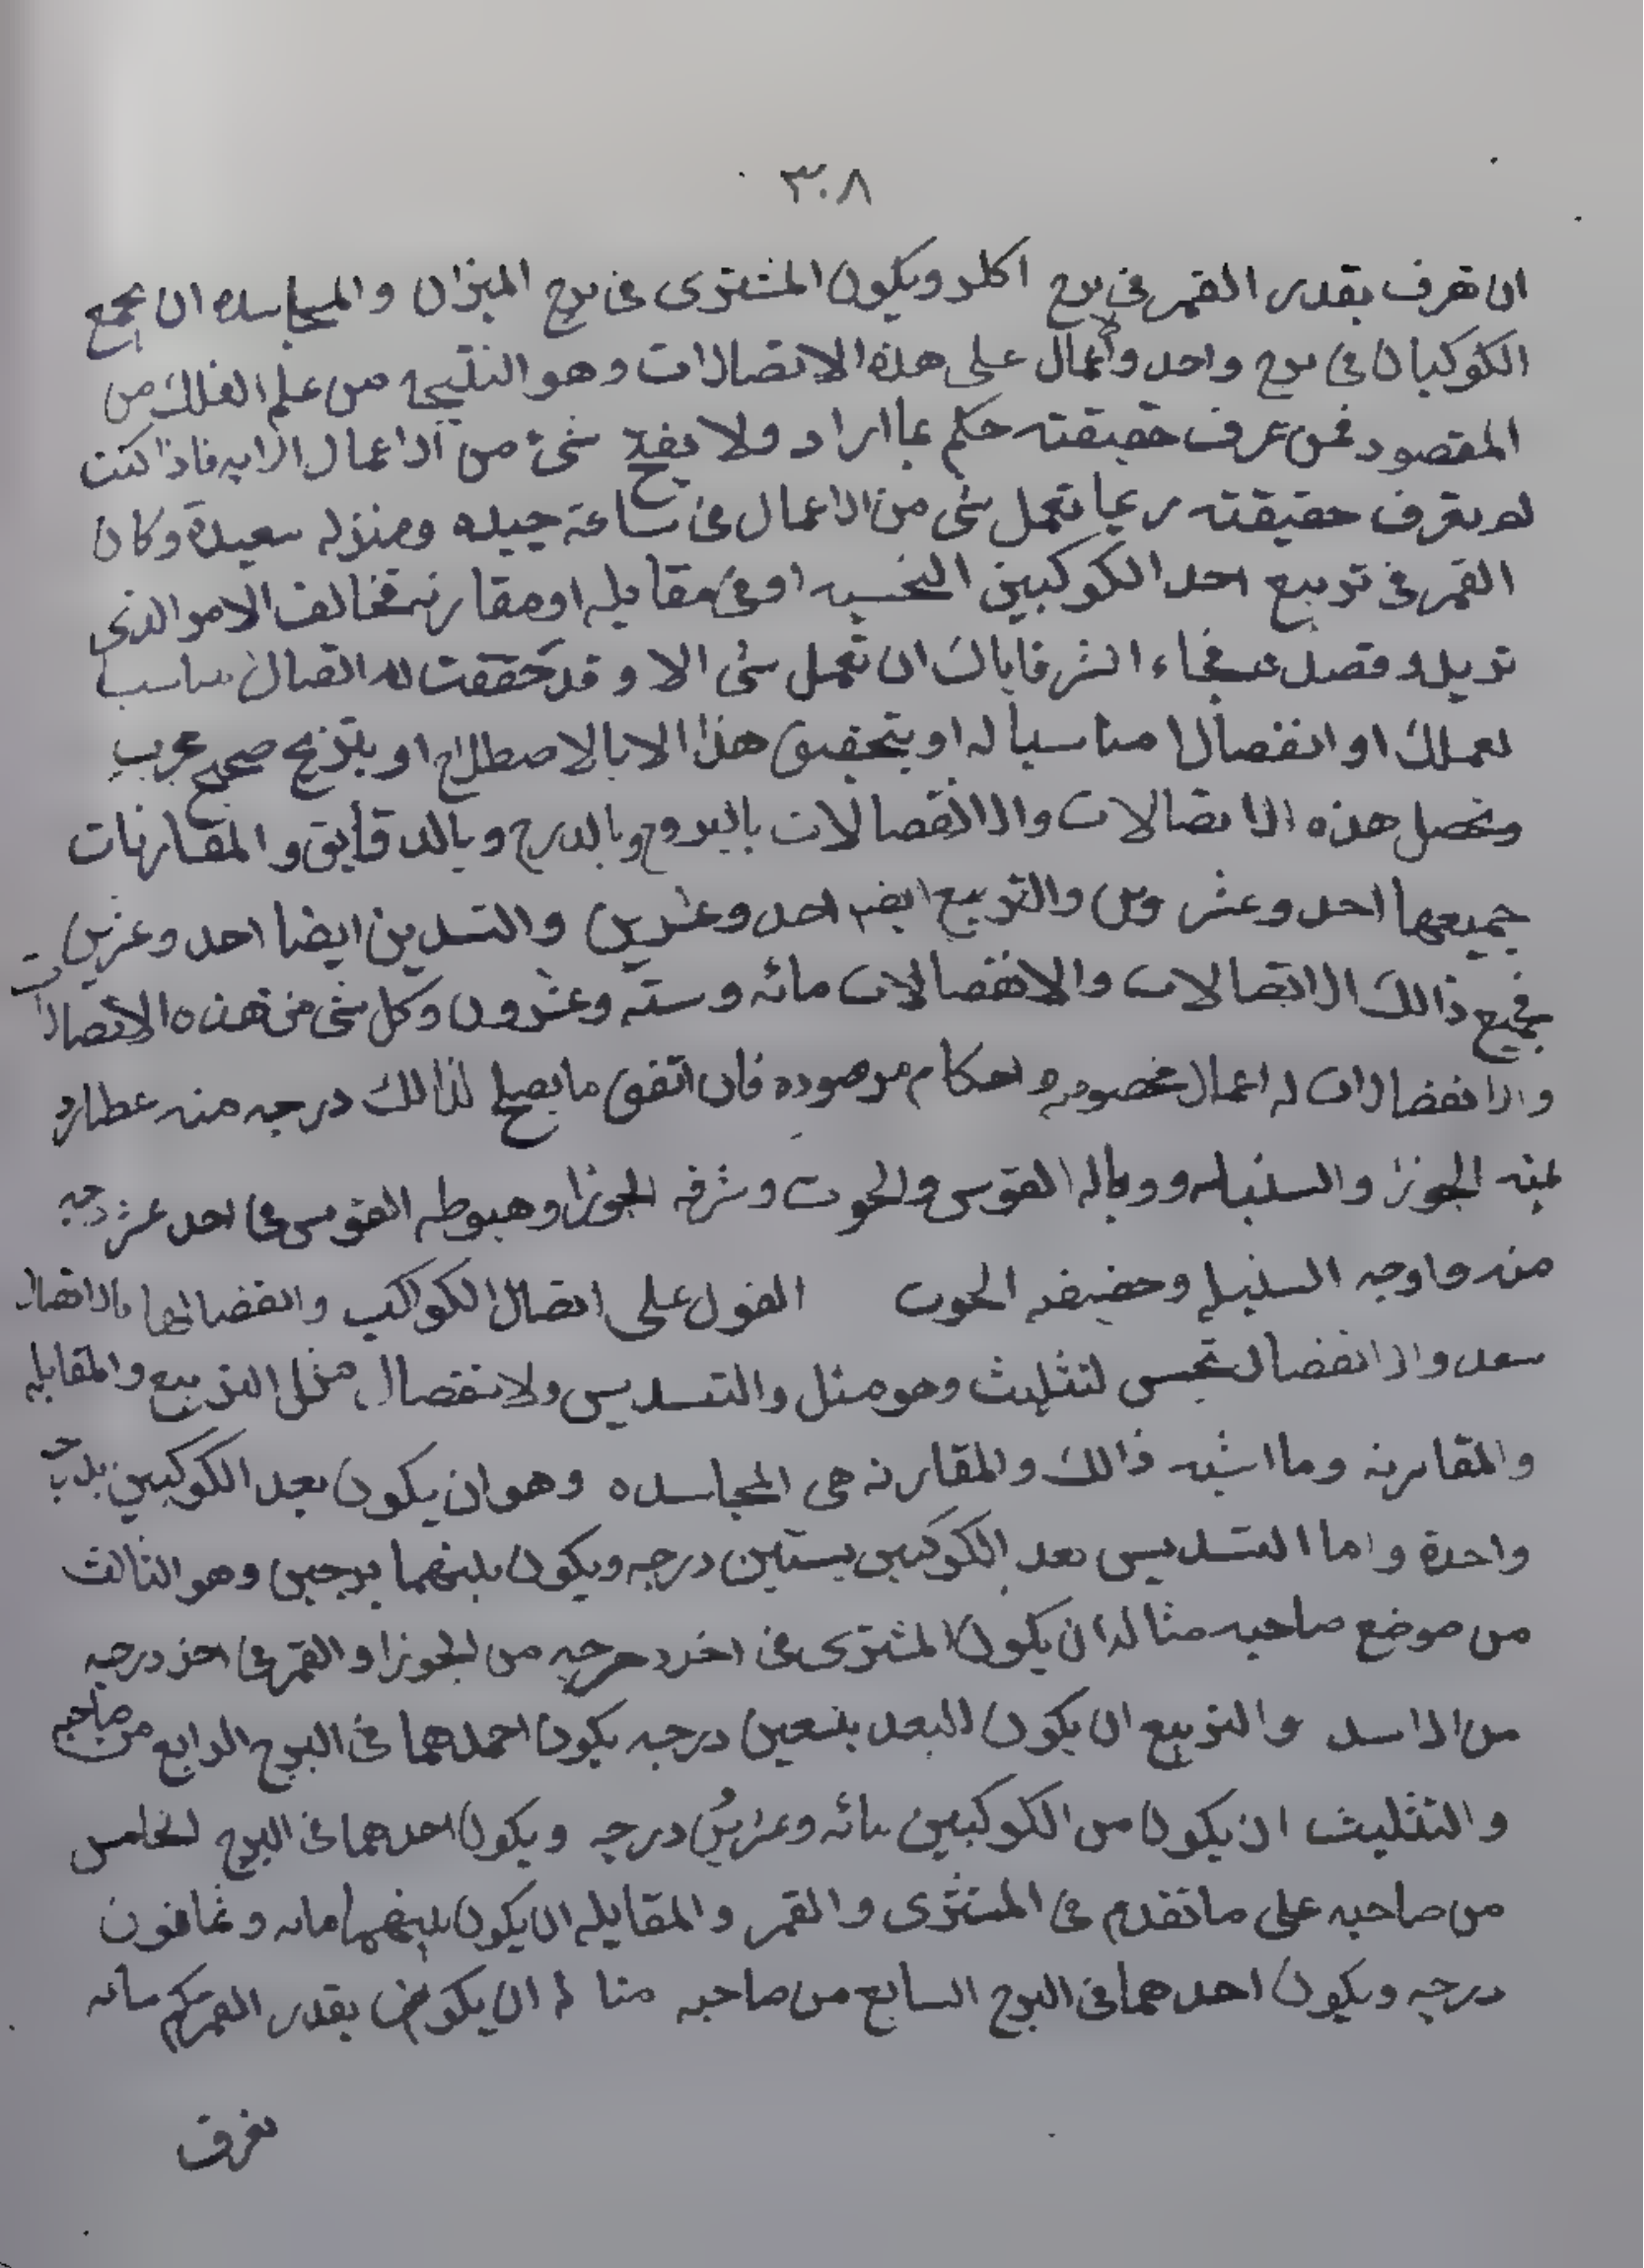 ٣٠٨
ان تعرف بقدر القمر فى برج ويكون المشترى فى برج الميزان ان يجمع
الكوكبان فى برج واحد على هذه الاتصالات وهو النتيجه من علم الفلك من
المقصود فمن عرف حقيقته حكم بما اراد ولا شىء من الاعمال فاذا كنت
لم تعرف حقيقته ربما تعمل شى من الاعمال فى ساعة جيده ومنزله سعيدة وكان
القمر فى تربيع احد الكوكبين او فى مقابله او مقارنه فخالف الامر الذى
فاياك ان تعمل شى الا وقد حققت له اتصال
لعملك او انفصالا مناسبا له او يتحقيق هذا الا بالاصطلاح صحيح مجرب
وتحصل هذه الاتصالات والانفصالات بالبروج وبالدرج وبالدقايق والمقارنات
جميعها احد وعشر والتربيع ايضا احد وعشرين والتسديس ايضا احد وعشرين
فجميع ذالك الاتصالات والانفصالات مائه وسته وعشرون وكل شى من هذه الاتصالات
والانفصالات له اعمال مخصوصه واحكام مرصوده فان اتفق ما يصلح لذالك درجه منه عطارد
الجوزا والسنبله ووباله القوس والحوت وشرفه الجوزا وهبوطه القوس فى احد عشر درجه
منه واوجه السنبله وحضيضه الحوت القول على اتصال الكواكب وانفصالها
سعد والانفصال نحس وهو مثل والتسديس ولانفصال مثل التربيع والمقابله
والمقارنه وما اشبه ذالك والمقارنه هى المجاسده وهو ان يكون بعد الكوكبين
واحدة واما التسديس بعد الكوكبين بستين درجه ويكون بينهما برجين وهو الثالث
من موضع صاحبه مثاله ان يكون المشترى فى اخر من الجوزا والقمر فى اخر درجه
من الاسد والتربيع ان يكون البعد بتسعين درجه يكون احدهما فى البرج الرابع من صاحبه
والتثليث ان يكون من الكوكبين مائه وعشرين درجه ويكون احدهما فى البرج الخامس
من صاحبه على ما تقدم فى المشترى والقمر والمقابله ان يكون بينهما مايه وثمانون
درجه ويكون احدهما فى البرج السابع من صاحبه مثاله ان يكون بقدر القمر
تعرف